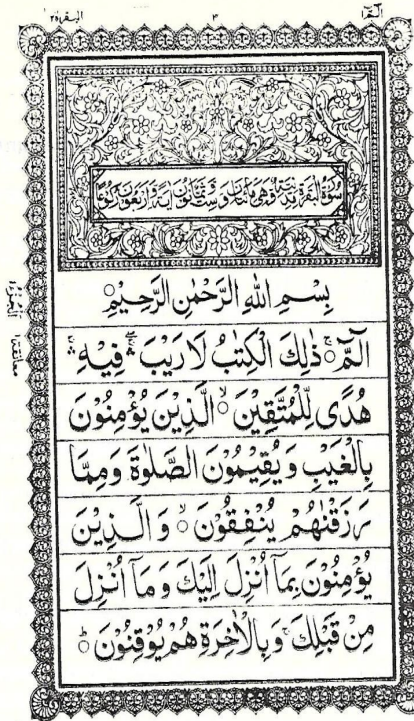 الٓمّٓ ١ ٣ البقرة ٢
سُوْرَةُ الْبَقَرَةِ مَدَنِيَّةٌ وَّهِيَ مِائَتَانِ وَسِتٌّ وَّثَمَانُوْنَ اٰيَةً وَّاَرْبَعُوْنَ رُكُوْعًا
بِسْمِ اللّٰهِ الرَّحْمٰنِ الرَّحِيْمِ ۝
الٓمّٓ ۝ۚ ذٰلِكَ الْكِتٰبُ لَا رَيْبَ ۛۖ فِيْهِ ۛۚ
هُدًى لِّلْمُتَّقِيْنَ ۝ۙ الَّذِيْنَ يُؤْمِنُوْنَ
بِالْغَيْبِ وَيُقِيْمُوْنَ الصَّلٰوةَ وَمِمَّا
رَزَقْنٰهُمْ يُنْفِقُوْنَ ۝ۙ وَالَّذِيْنَ
يُؤْمِنُوْنَ بِمَآ اُنْزِلَ اِلَيْكَ وَمَآ اُنْزِلَ
مِنْ قَبْلِكَ ۚ وَبِالْاٰخِرَةِ هُمْ يُوْقِنُوْنَ ۝ؕ